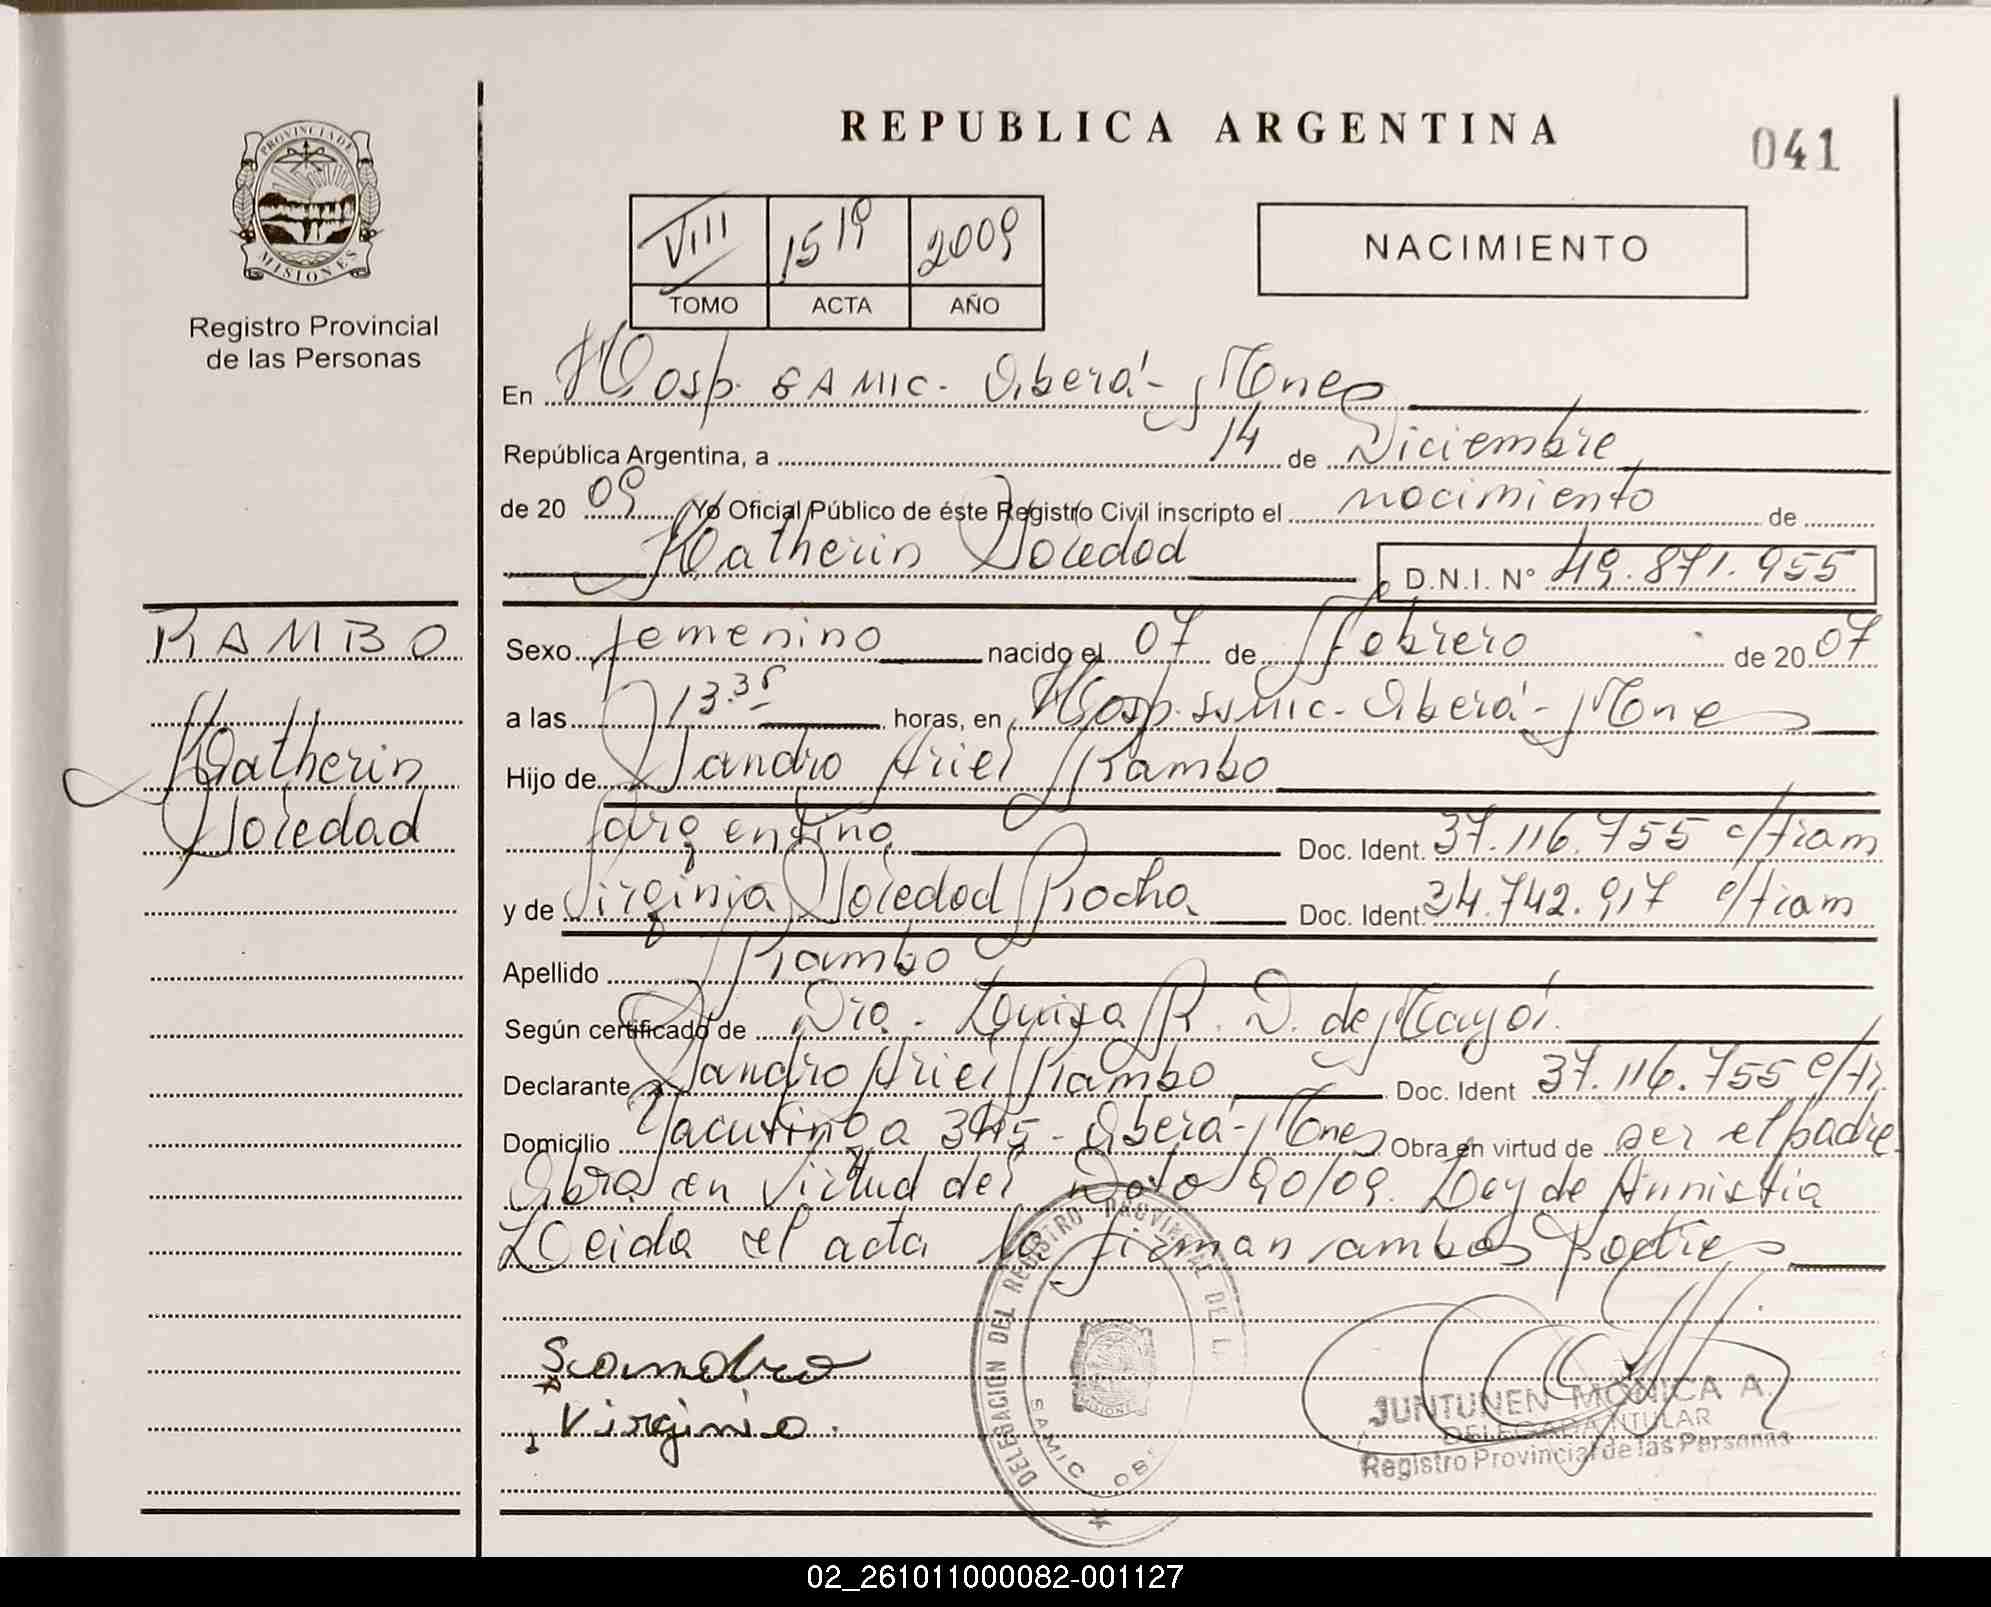 REPUBLICA ARGENTINA
041
PROVINCIA DE
MISIONES
Registro Provincial
de las Personas
VIII 1519 2009
TOMO ACTA AÑO
NACIMIENTO
En Hosp. SAMIC - Oberá - Mnes
República Argentina, a 14 de Diciembre
de 2009 Yo Oficial Público de éste Registro Civil inscripto el nacimiento de
Katherin Soledad D.N.I. N° 49.871.955
RAMBO
Katherin
Soledad
Sexo femenino nacido el 07 de febrero de 2007
a las 13.35 horas, en Hosp. SAMIC - Oberá - Mnes
Hijo de Sandro Ariel Rambo
argentino Doc. Ident. 37.116.755 c/tram
y de Virginia Soledad Rocha Doc. Ident. 34.742.917 c/tram
Apellido Rambo
Según certificado de Dra. Louisa R. D. de
Declarante Sandro Ariel Rambo Doc. Ident 37.116.755 c/tr.
Domicilio Yacutinga 345 - Oberá - Mnes Obra en virtud de ser el padre
Obra en virtud del Dcto 90/09. Ley de Amnistia
Leida el acta la firman ambos padres
Sandro
Virginia.
DELEGACION DEL REGISTRO PROVINCIAL DE L
SAMIC OBE
JUNTUNEN MONICA A.
DELEGADA TITULAR
Registro Provincial de las Personas
02_261011000082-001127